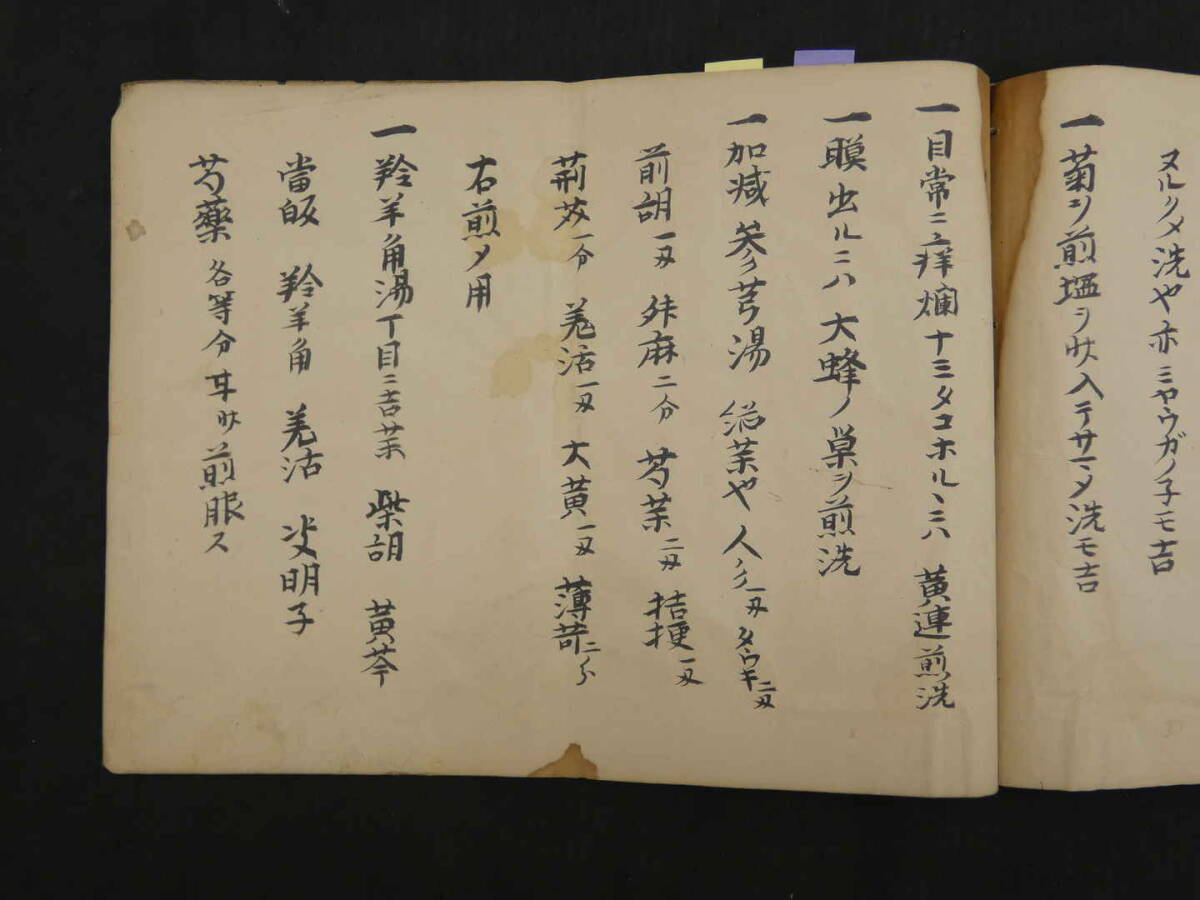 ヌルクメ洗や亦ミヤウガノ子モ吉
一菊ヲ煎塩ヲ少入テサマメ洗モ吉
一目常ニ痒爛十ミタコホルヽニハ 黄連煎洗
一瞙出ルニハ 大蜂ノ巣ヲ煎洗
一加減 参芎湯 や人
前胡一匁 舛麻二分 芍薬二匁 桔梗一匁
荊芥一分 羗活一匁 大黄一匁 薄荷二分
右煎メ用
一羚羊角湯丁目ニ吉薬 柴胡 黄芩
當皈 羚羊角 羗活 决明子
芍藥 各等分 煎服ス